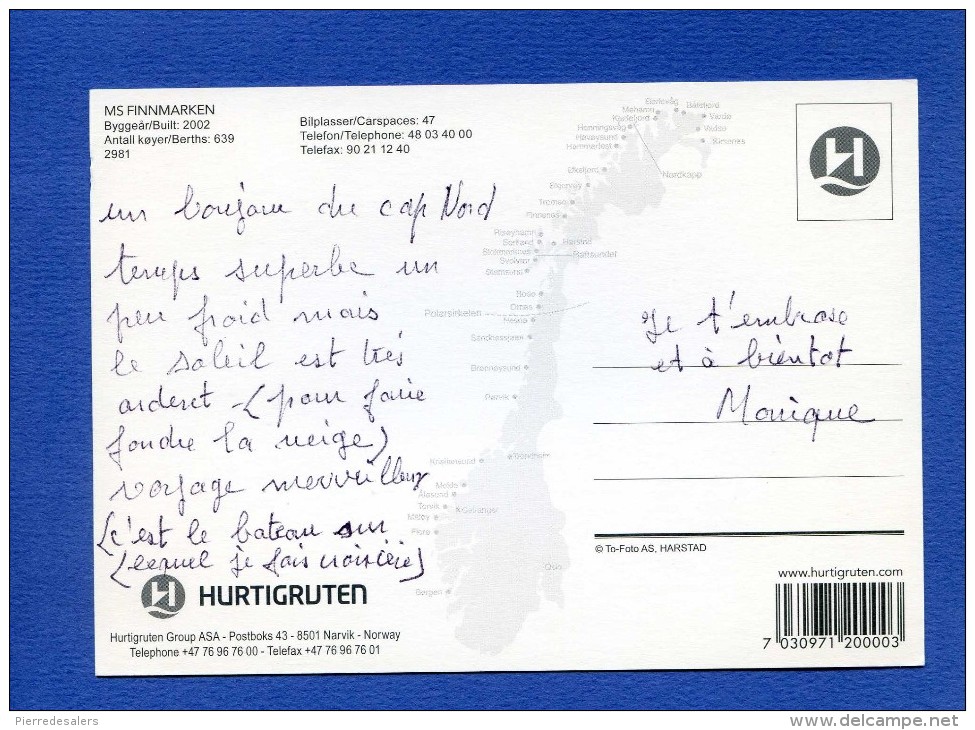 MS FINNMARKEN
Byggeår/Built: 2002
Antall køyer/Berths: 639
2981
Bilplasser/Carspaces: 47
Telefon/Telephone: 48 03 40 00
Telefax: 90 21 12 40
un bonjour du cap Nord
temps superbe un
peu froid mais
le soleil est très
ardent (pour faire
fondre la neige)
voyage merveilleux
(c'est le bateau sur
(lequel je fais croisière)
Je t'embrasse
et à bientot
Monique
Berlevåg
Båtsfjord
Mehamn
Kjøllefjord
Vardø
Honningsvåg
Vadsø
Havøysund
Kirkenes
Hammerfest
Nordkapp
Øksfjord
Skjervøy
Tromsø
Finnsnes
Risøyhamn
Sortland
Harstad
Stokmarknes
Raftsundet
Svolvær
Stamsund
Bodø
Ørnes
Polarsirkelen
Nesna
Sandnessjøen
Brønnøysund
Rørvik
Kristiansund
Trondheim
Molde
Ålesund
Torvik
Geiranger
Måløy
Florø
Oslo
Bergen
© To-Foto AS, HARSTAD
HURTIGRUTEN
Hurtigruten Group ASA - Postboks 43 - 8501 Narvik - Norway
Telephone +47 76 96 76 00 - Telefax +47 76 96 76 01
www.hurtigruten.com
7 030971 200003
Pierredesalers
delcampe.net